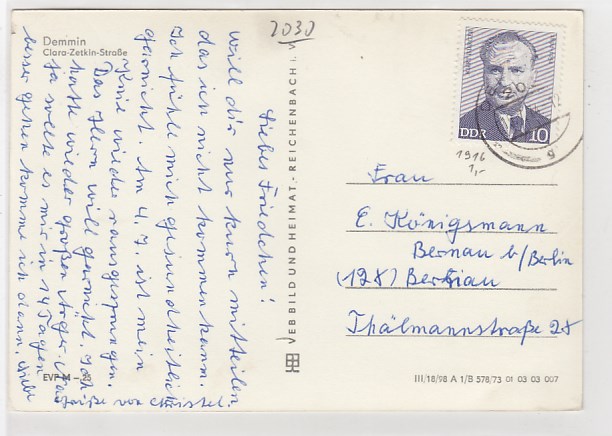 2030
Demmin
Clara-Zetkin-Straße
Liebes Friedchen!
Will dir nur kurn mitteilen
das ich nicht kommen kann.
Ich fühle mich gesundheitlich
garnicht. Am 4. 7. ist mein
Knie wieder rausgesprungen.
Das Hern will garnicht. Ich
hatte wieder großen Ärger.
sollte es mir in 14 Tagen
besser gehen komme ich dann. Viele
Grüße von Christel.
EVP M –
VEB BILD UND HEIMAT · REICHENBACH i. V.
DDR 10
1916
1,-
Frau
E. Königsmann
Bernau b/Berlin
(128) Bernau
Thälmannstraße 28
III/18/98 A 1/B 578/73 01 03 03 007